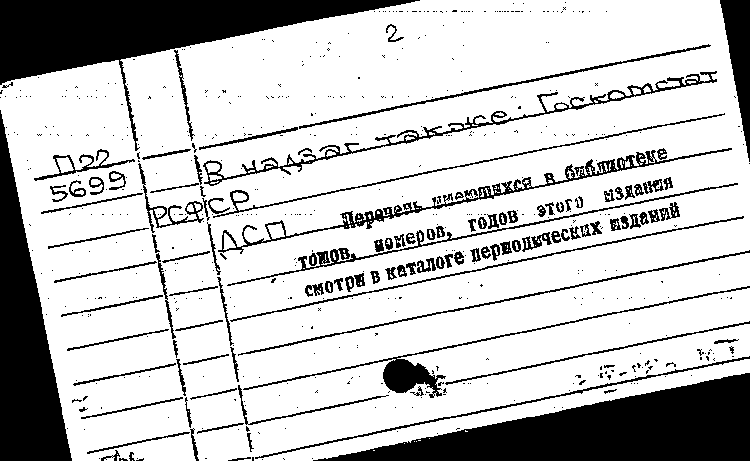 2
П22
5699
В надзаг также: Госкомстат
РСФСР.
ДСП.
Перечень имеющихся в библиотеке
томов, номеров, годов этого издания
смотри в каталоге периодических изданий